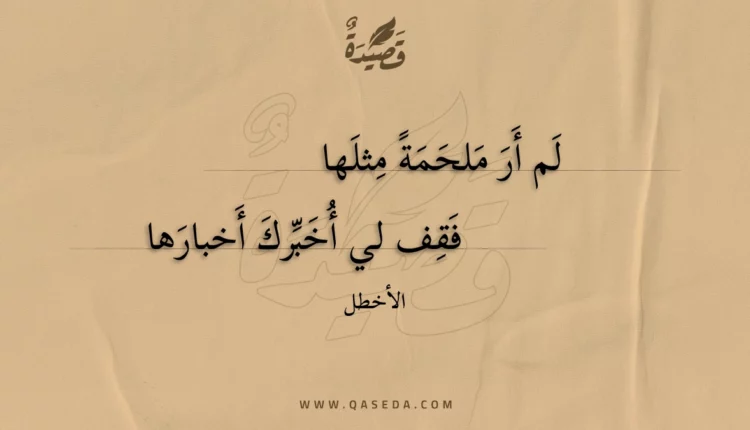 قَصِيدَةٌ
لَم أَرَ مَلحَمَةً مِثلَها
فَقِف لي أُخَبِّركَ أَخبارَها
الأخطل
WWW.QASEDA.COM